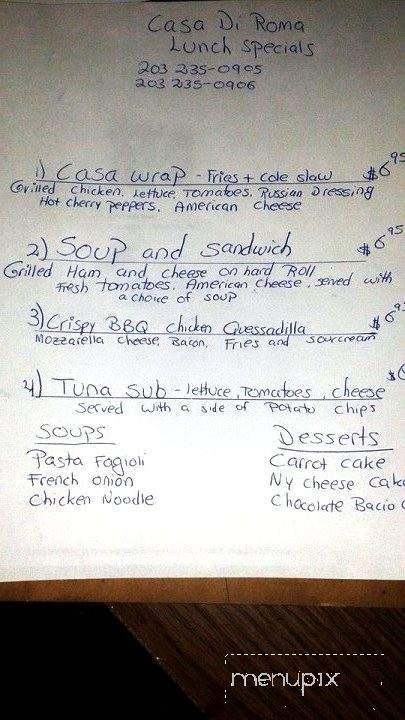 Casa Di Roma
Lunch specials
203 235-0905
203 235-0906
1) Casa wrap - Fries + cole slaw $6.95
Grilled chicken, lettuce, Tomatoes, Russian Dressing
Hot cherry peppers, American cheese
2) Soup and Sandwich $6.95
Grilled Ham and cheese on hard Roll
Fresh tomatoes, American cheese, served with
a choice of soup
3) Crispy BBQ chicken Quessadilla $6.9
Mozzarella cheese, Bacon, Fries and sourcream
4) Tuna Sub - lettuce, Tomatoes, cheese $
Served with a side of potato chips
Soups
Pasta Fagioli
French onion
Chicken Noodle
Desserts
Carrot cake
Ny cheese cake
Chocolate Bacio
menupix